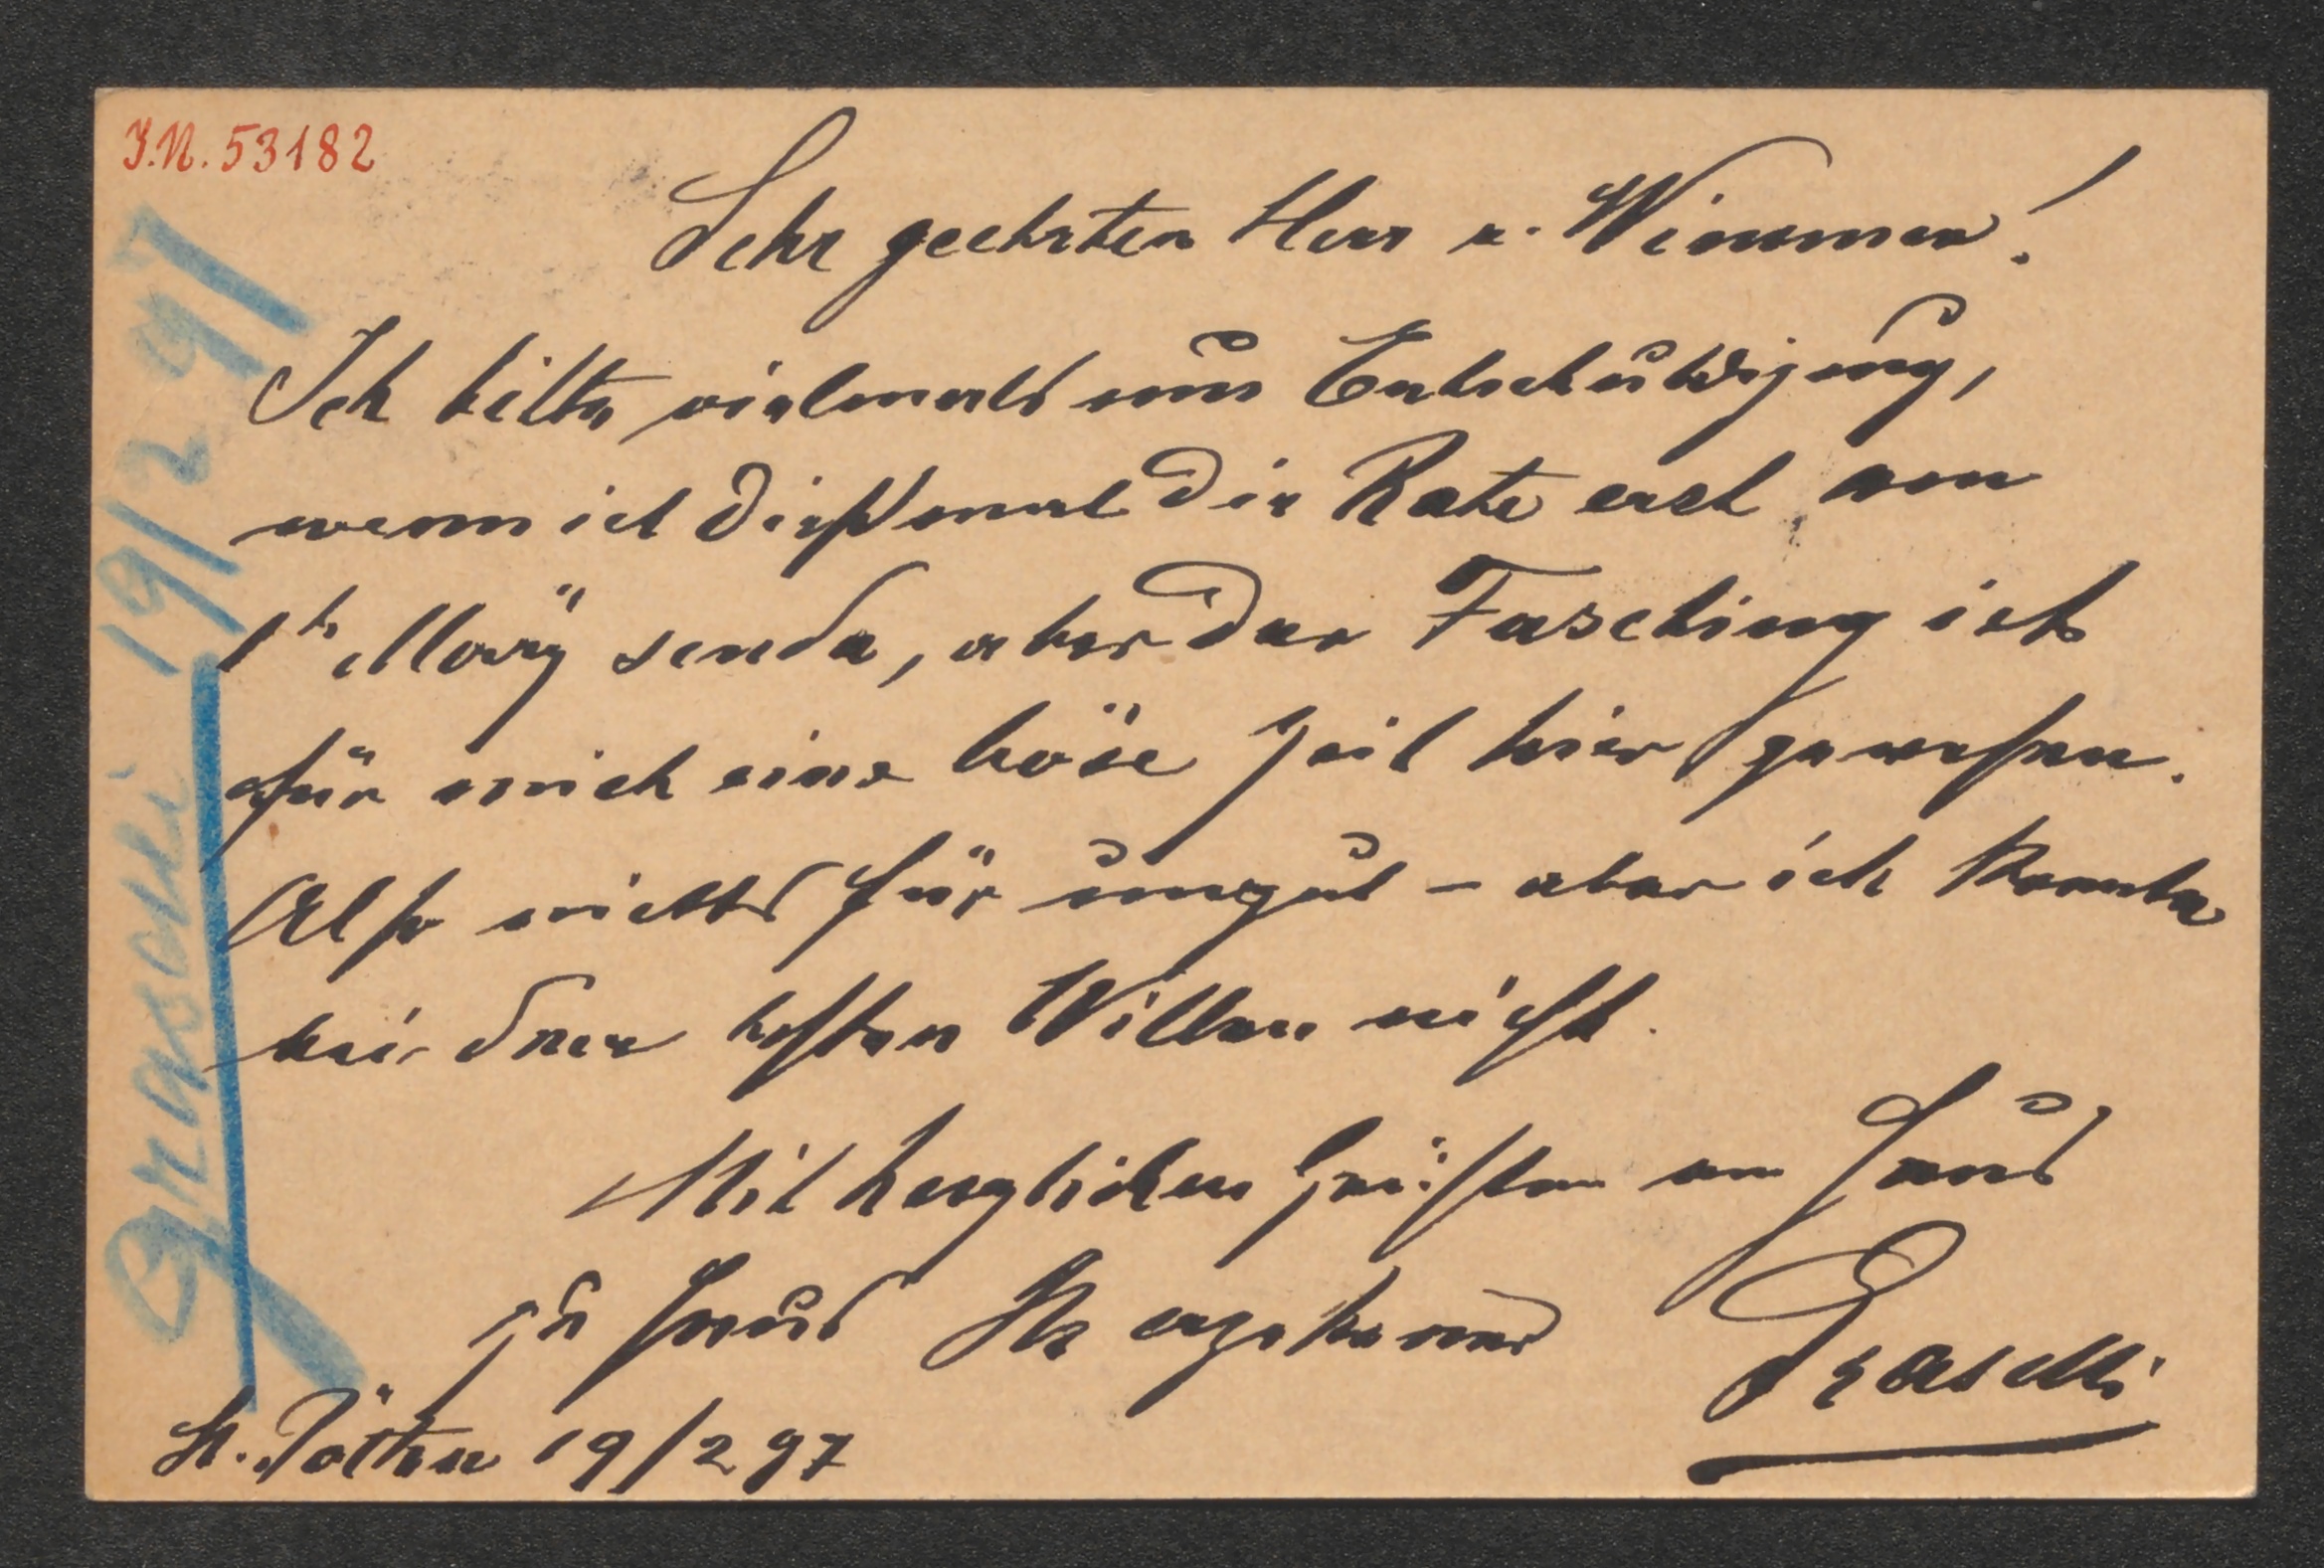 J.N. 53182
Grasselli 19/2 97
Sehr geehrter Herr v. Wimmer!
Ich bitte vielmals um Entschuldigung,
wenn ich dießmal die Rate erst am
1t März sende, aber der Fasching ist
für mich eine böse Zeit hier gewesen.
Also nichts für ungut – aber ich konnte
bei dem besten Willen nicht.
Mit herzlichen Grüßen von Haus
zu Haus Ihr ergebener Graselli
St. Pölten 19/2 97